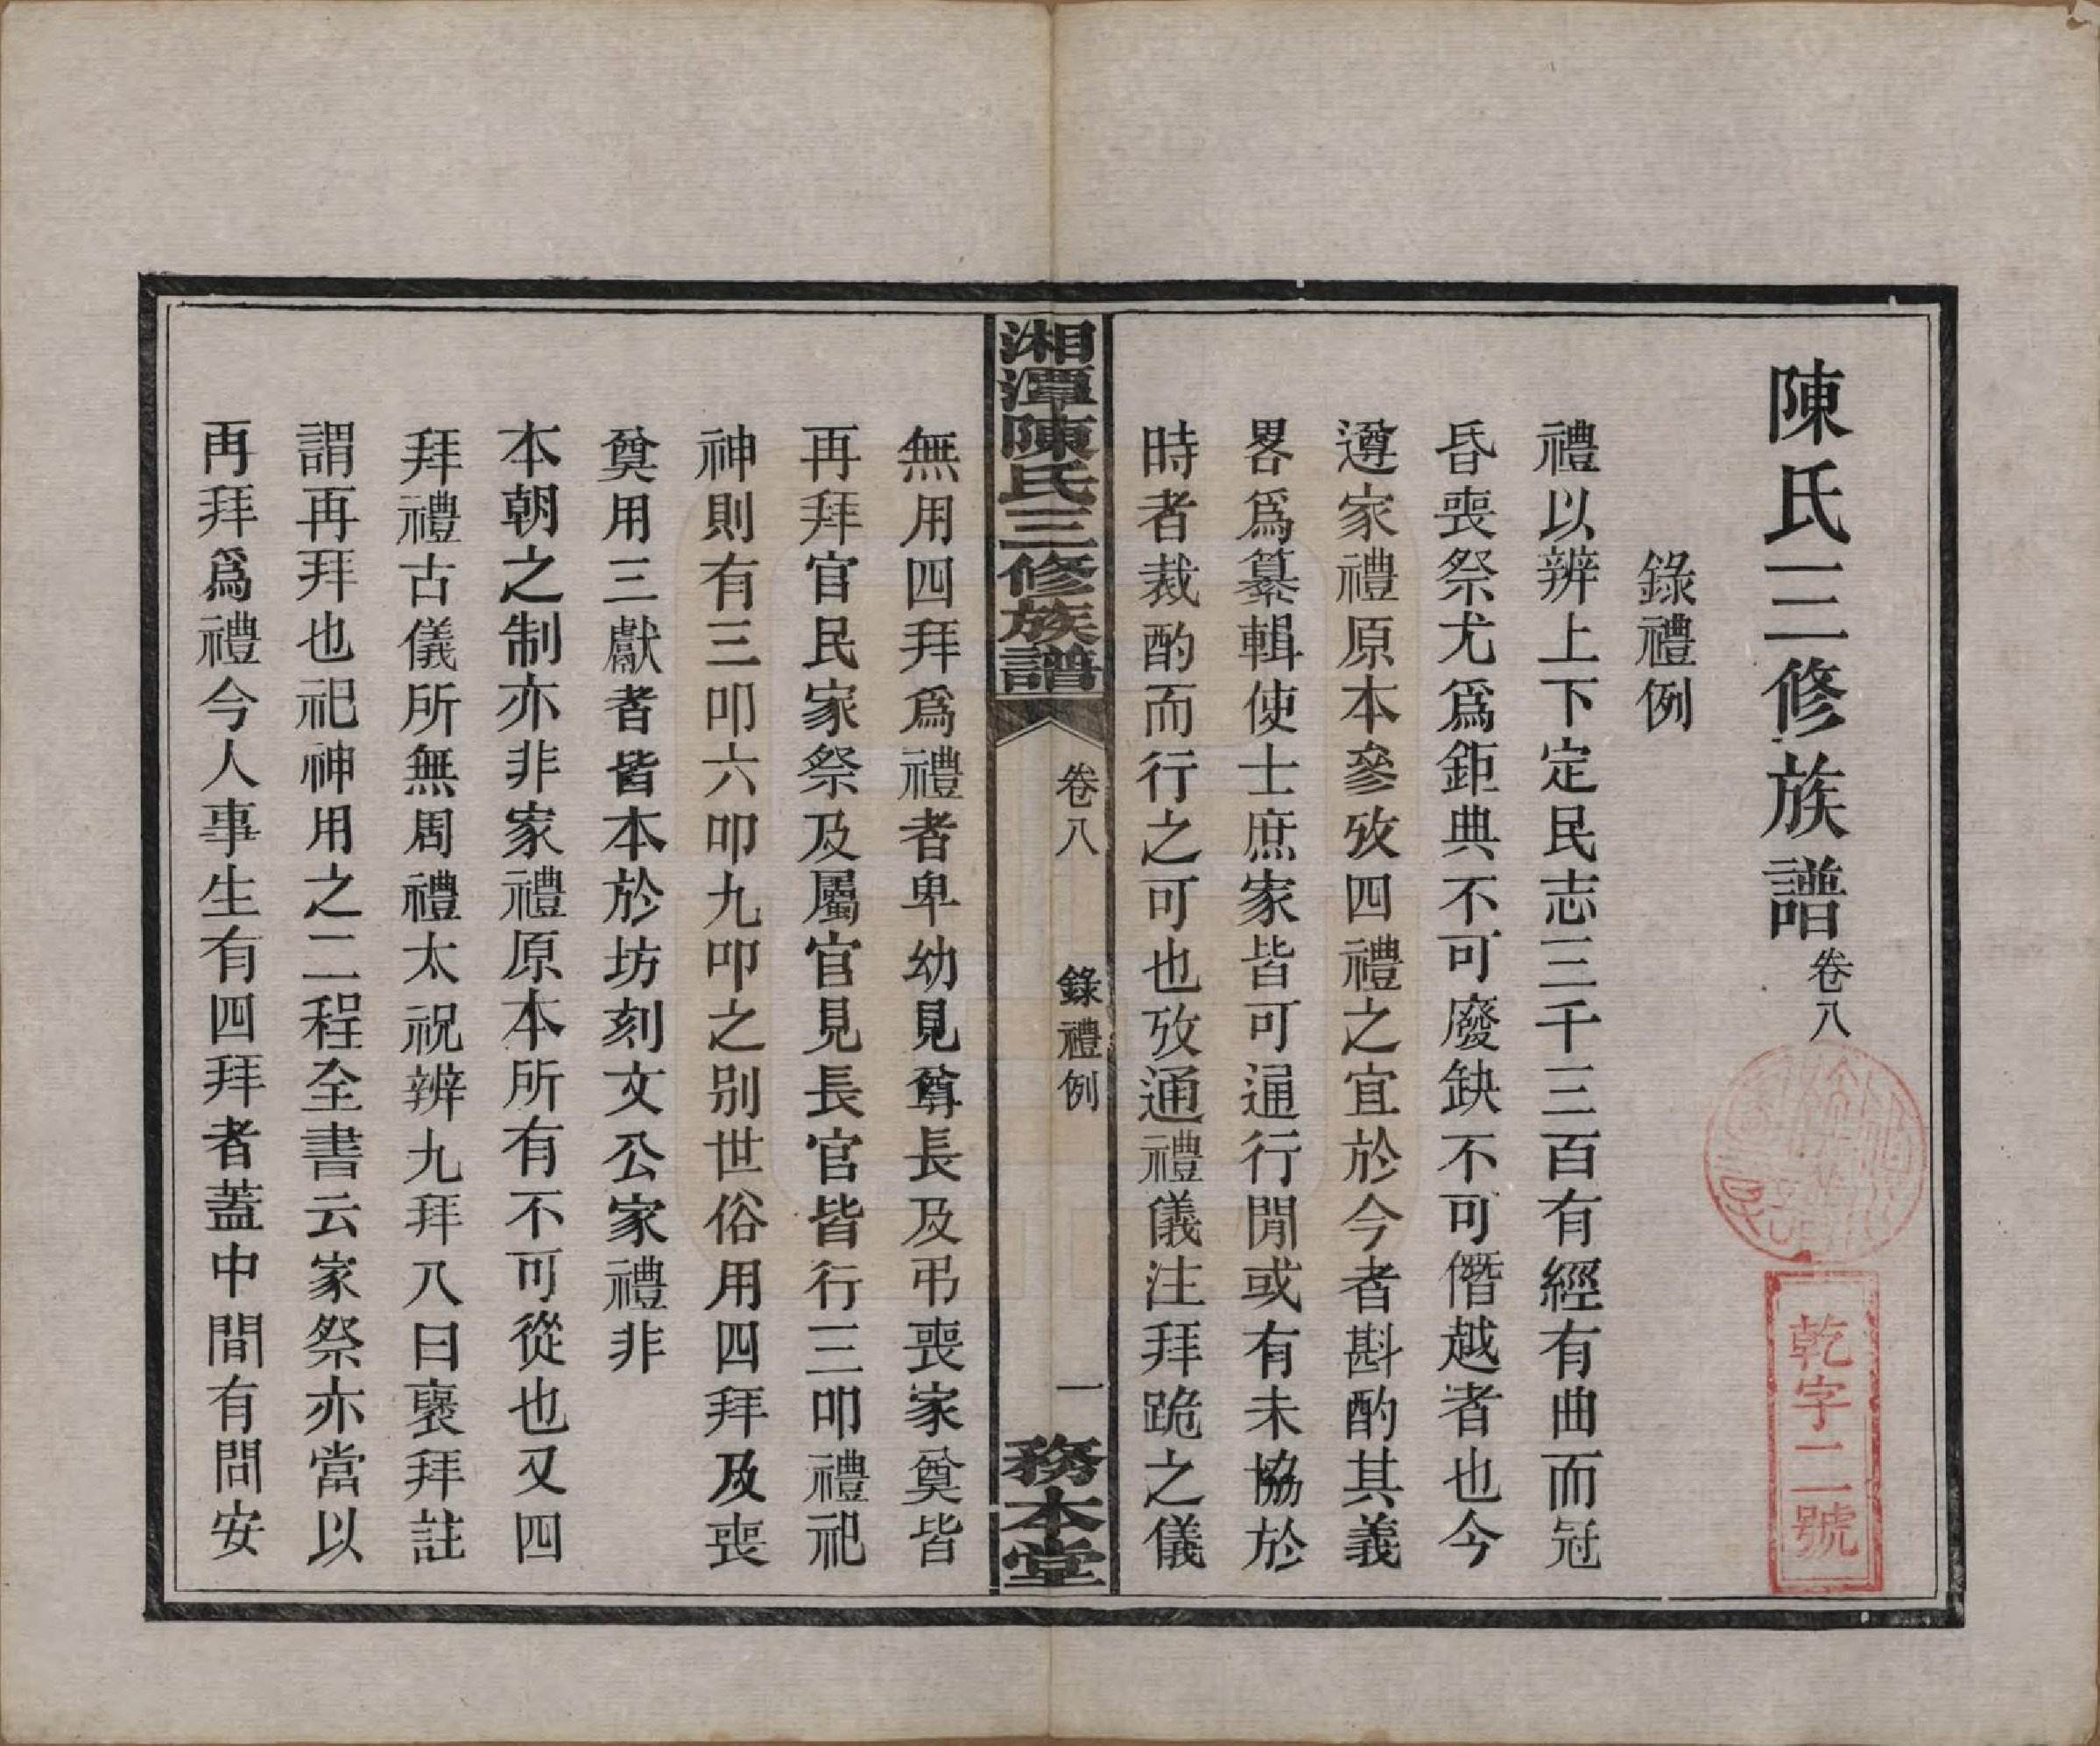 陳氏三修族譜卷八
錄禮例
禮以辨上下定民志三千三百有經有曲而冠
昏喪祭尤爲鉅典不可廢缺不可僭越者也今
遵家禮原本參攷四禮之宜於今者斟酌其義
畧爲纂輯使士庶家皆可通行閒或有未協於
時者裁酌而行之可也攷通禮儀注拜跪之儀
湘潭陳氏三修族譜
卷八
錄禮例
一
務本堂
無用四拜爲禮者卑幼見尊長及弔喪家奠皆
再拜官民家祭及屬官見長官皆行三叩禮祀
神則有三叩六叩九叩之别世俗用四拜及喪
奠用三獻者皆本於坊刻文公家禮非
本朝之制亦非家禮原本所有不可從也又四
拜禮古儀所無周禮太祝辨九拜八曰襃拜註
謂再拜也祀神用之二程全書云家祭亦當以
再拜爲禮今人事生有四拜者蓋中間有問安
乾字二號